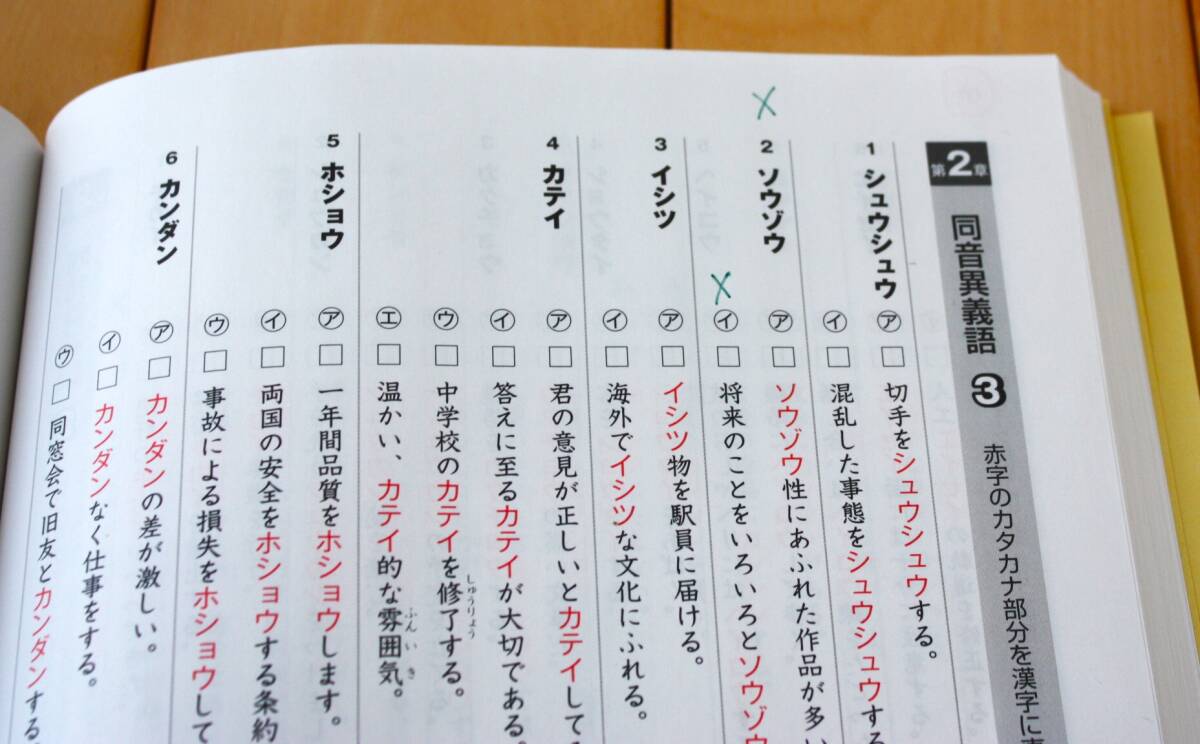 第2章 同音異義語 3 赤字のカタカナ部分を漢字に
1 シュウシュウ
㋐ □ 切手をシュウシュウする。
㋑ □ 混乱した事態をシュウシュウする
2 ソウゾウ
㋐ □ ソウゾウ性にあふれた作品が多い
㋑ □ 将来のことをいろいろとソウゾウ
3 イシツ
㋐ □ イシツ物を駅員に届ける。
㋑ □ 海外でイシツな文化にふれる。
4 カテイ
㋐ □ 君の意見が正しいとカテイして
㋑ □ 答えに至るカテイが大切である。
㋒ □ 中学校のカテイを修了する。
しゅうりょう
㋓ □ 温かい、カテイ的な雰囲気。
ふんいき
5 ホショウ
㋐ □ 一年間品質をホショウします。
㋑ □ 両国の安全をホショウする条約
㋒ □ 事故による損失をホショウして
6 カンダン
㋐ □ カンダンの差が激しい。
㋑ □ カンダンなく仕事をする。
㋒ □ 同窓会で旧友とカンダンする